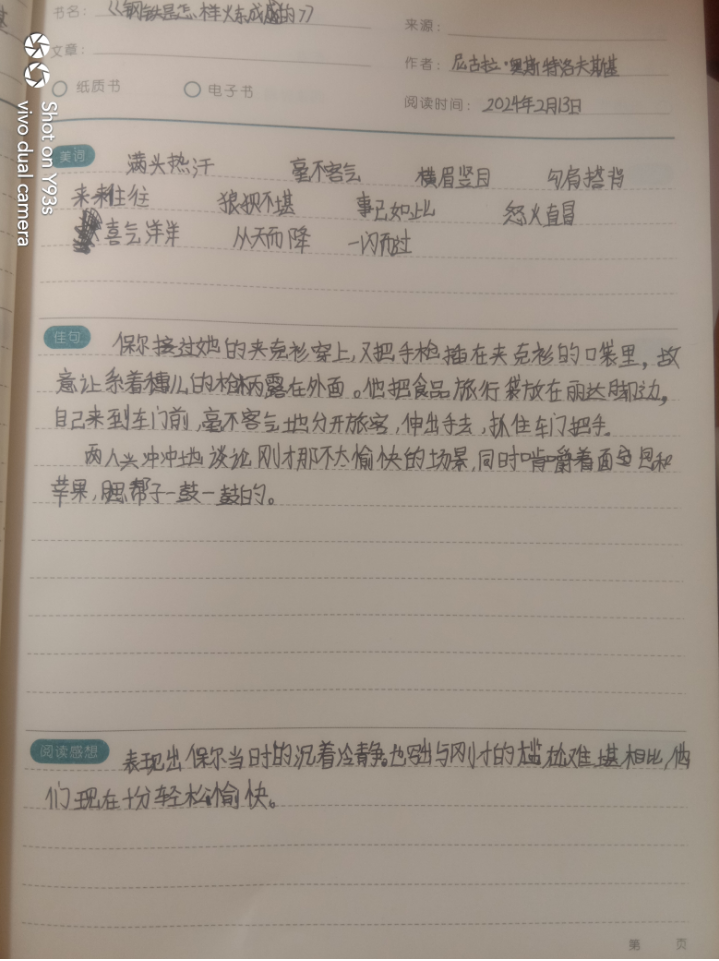 书名：《钢铁是怎样炼成的》
来源：
文章：
作者：尼古拉·奥斯特洛夫斯基
纸质书 电子书
阅读时间：2024年2月13日
美词
满头热汗 毫不客气 横眉竖目 勾肩搭背
来来往往 狼狈不堪 事已如此 怒火直冒
喜气洋洋 从天而降 一闪而过
佳句
保尔接过她的夹克衫穿上,又把手枪插在夹克衫的口袋里，故
意让系着穗儿的枪柄露在外面。他把食品旅行袋放在丽达脚边，
自己来到车门前,毫不客气地分开旅客,伸出手去,抓住车门把手.
两人兴冲冲地谈论刚才那不大愉快的场景,同时啃嚼着面包和
苹果,腮帮子一鼓一鼓的。
阅读感想
表现出保尔当时的沉着冷静。也写出与刚才的尴尬难堪相比,他
们现在十分轻松愉快。
第 页
Shot on Y93s
vivo dual camera